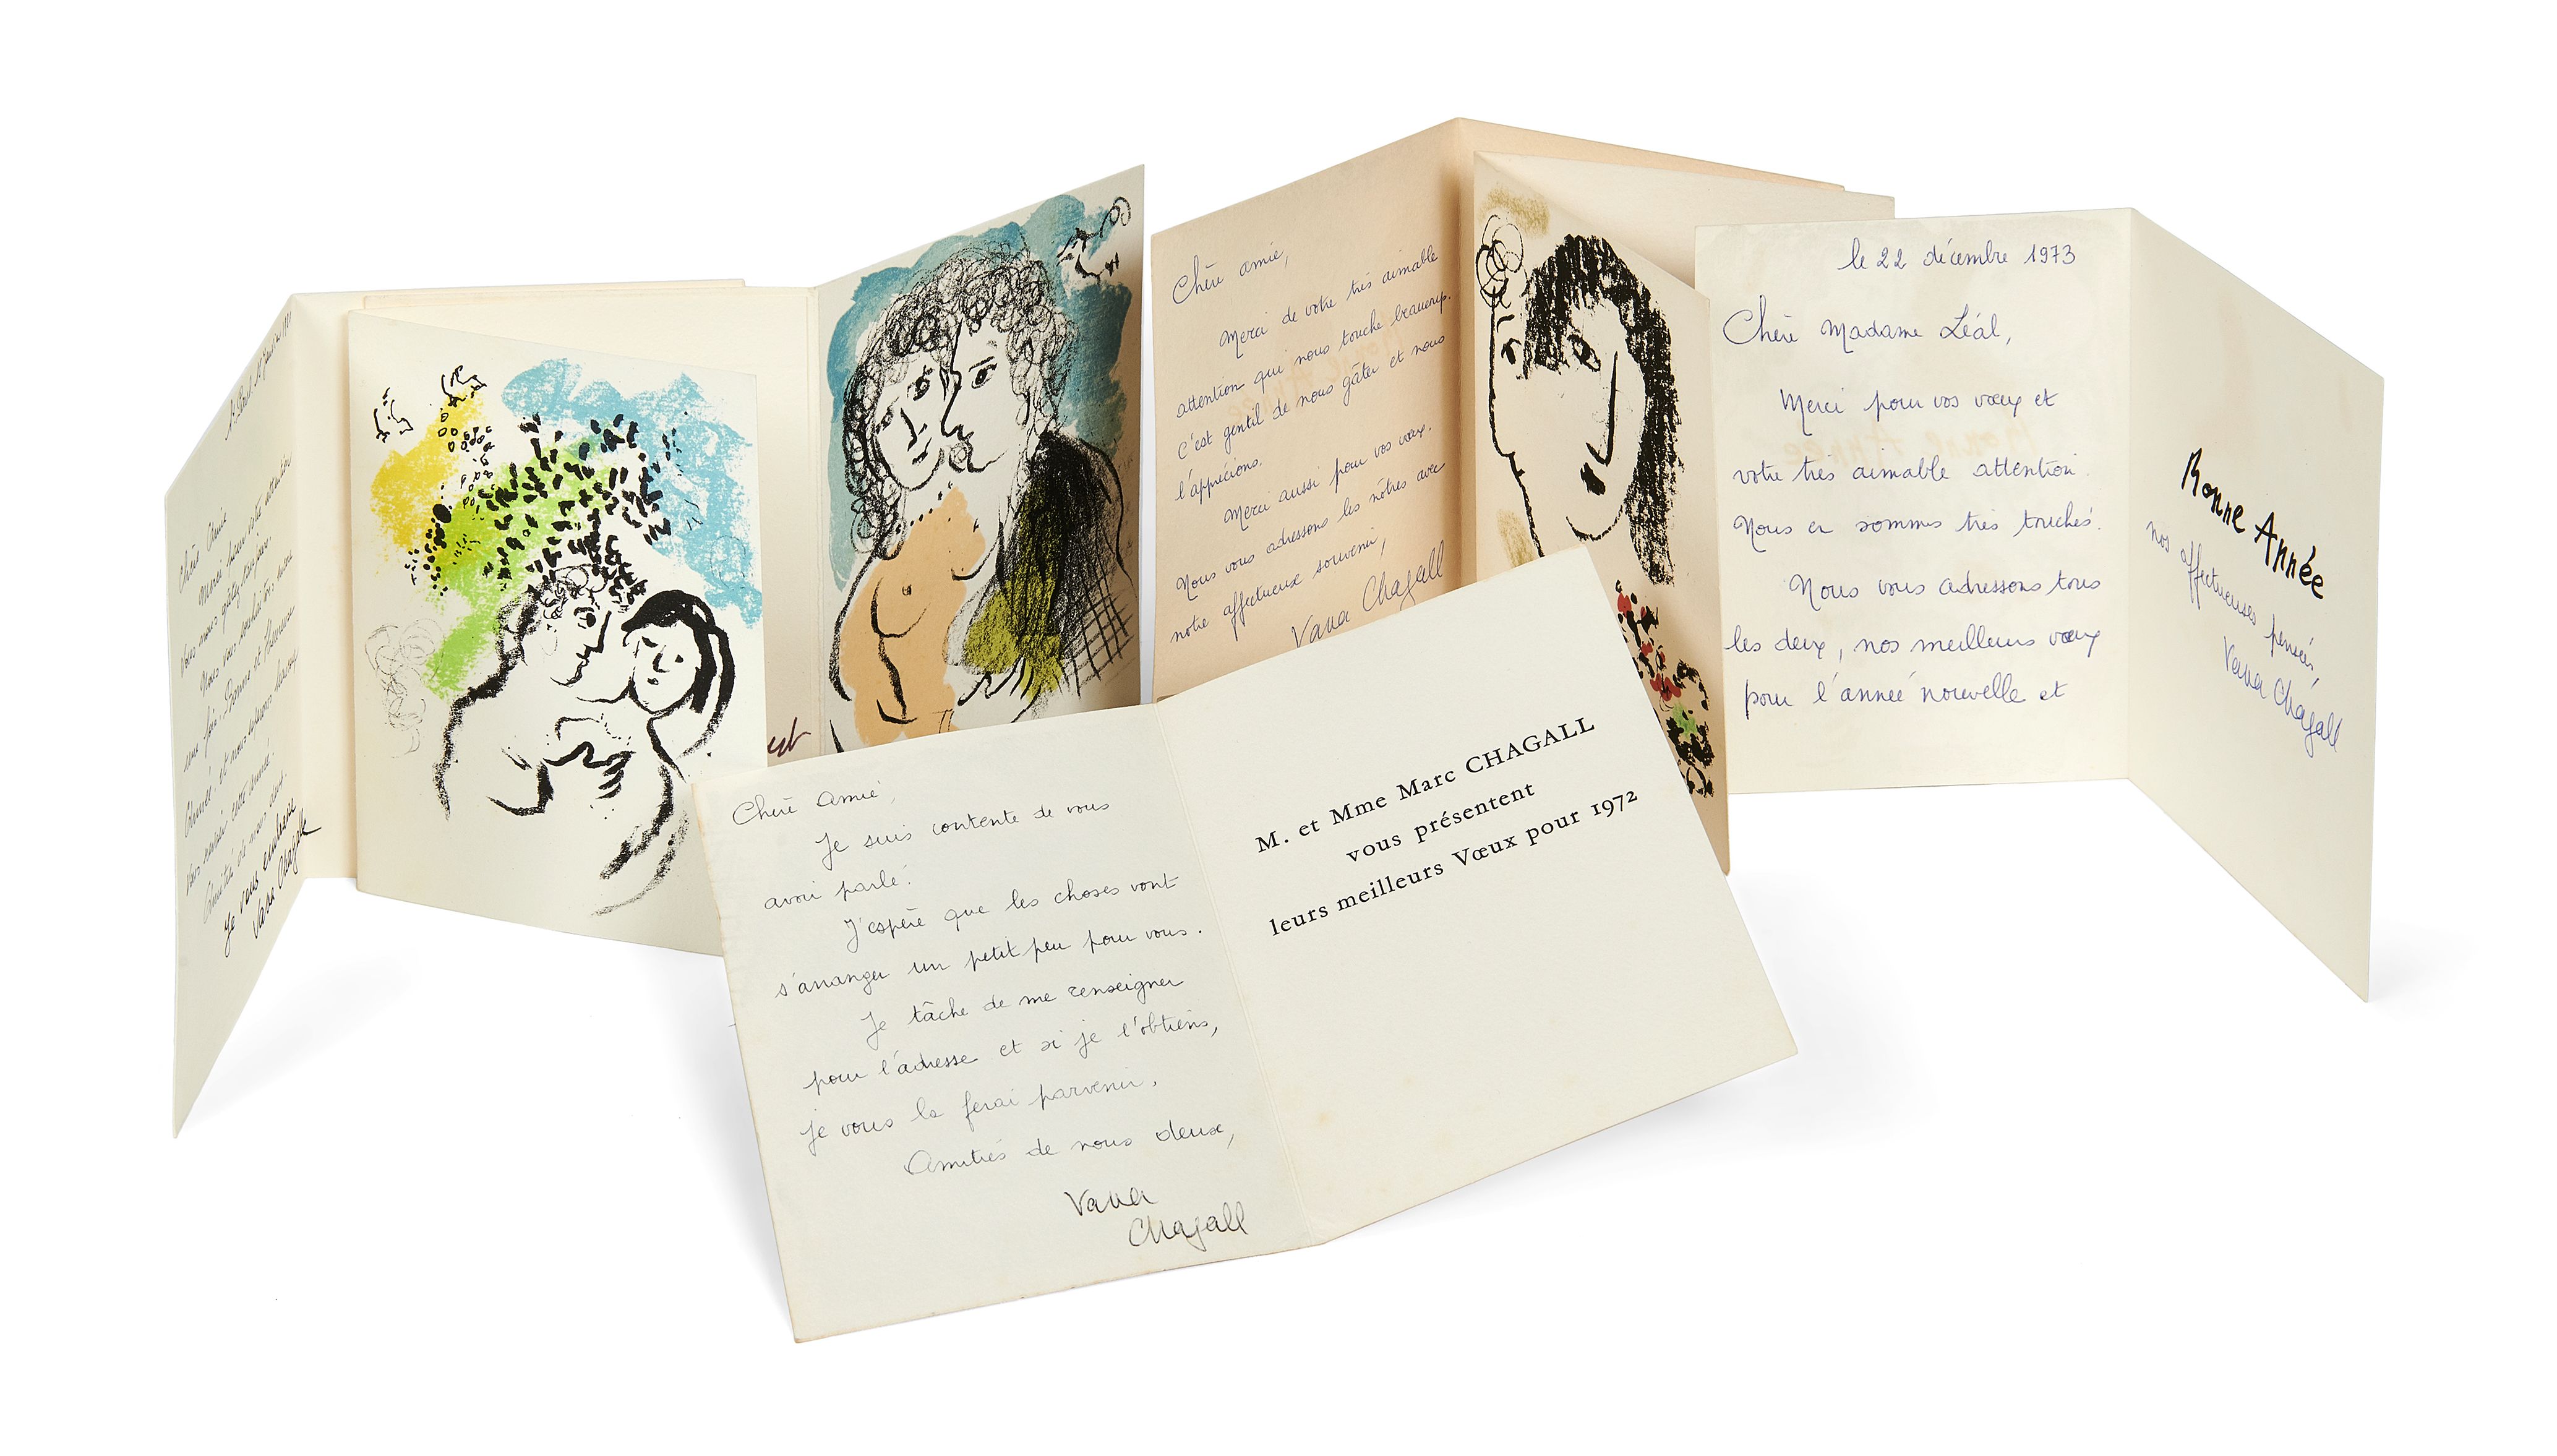 Chère Amie
Merci pour votre
vous nous gâtez toujours.
Nous vous souhaitons
une fois, Bonne et Heureuse
Année et nous
cette année.
Amitiés de nous deux.
Je vous embrasse
Vava Chagall
Chère amie,
Merci de votre très aimable
attention qui nous touche beaucoup.
C'est gentil de nous gâter et nous
l'apprécions.
Merci aussi pour vos vœux.
Nous vous adressons les nôtres avec
notre affectueux souvenir,
Vava Chagall
le 22 décembre 1973
Chère Madame Léal,
Merci pour vos vœux et
votre très aimable attention.
Nous en sommes très touchés.
Nous vous adressons tous
les deux, nos meilleurs vœux
pour l'année nouvelle et
Bonne Année
nos affectueuses pensées,
Vava Chagall
Chère Amie,
Je suis contente de vous
avoir parlé.
J'espère que les choses vont
s'arranger un petit peu pour vous.
Je tâche de me renseigner
pour l'adresse et si je l'obtiens,
je vous la ferai parvenir.
Amitiés de nous deux,
Vava
Chagall
M. et Mme Marc CHAGALL
vous présentent
leurs meilleurs Vœux pour 1972